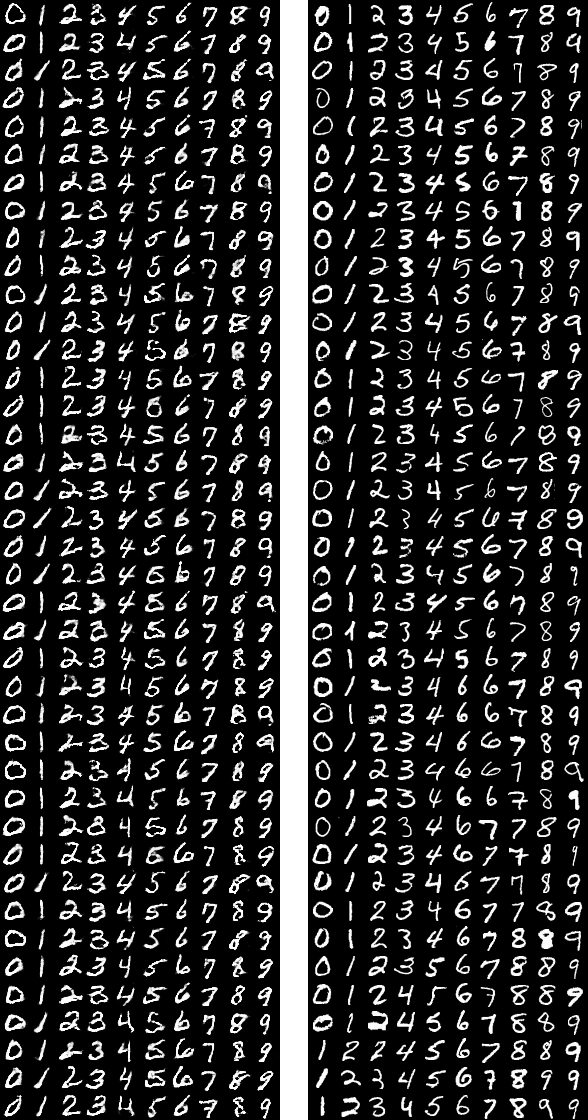 0 1 2 3 4 5 6 7 8 9 0 1 2 3 4 5 6 7 8 9
0 1 2 3 4 5 6 7 8 9 0 1 2 3 4 5 6 7 8 9
0 1 2 3 4 5 6 7 8 9 0 1 2 3 4 5 6 7 8 9
0 1 2 3 4 5 6 7 8 9 0 1 2 3 4 5 6 7 8 9
0 1 2 3 4 5 6 7 8 9 0 1 2 3 4 5 6 7 8 9
0 1 2 3 4 5 6 7 8 9 0 1 2 3 4 5 6 7 8 9
0 1 2 3 4 5 6 7 8 9 0 1 2 3 4 5 6 7 8 9
0 1 2 3 4 5 6 7 8 9 0 1 2 3 4 5 6 7 8 9
0 1 2 3 4 5 6 7 8 9 0 1 2 3 4 5 6 7 8 9
0 1 2 3 4 5 6 7 8 9 0 1 2 3 4 5 6 7 8 9
0 1 2 3 4 5 6 7 8 9 0 1 2 3 4 5 6 7 8 9
0 1 2 3 4 5 6 7 8 9 0 1 2 3 4 5 6 7 8 9
0 1 2 3 4 5 6 7 8 9 0 1 2 3 4 5 6 7 8 9
0 1 2 3 4 5 6 7 8 9 0 1 2 3 4 5 6 7 8 9
0 1 2 3 4 5 6 7 8 9 0 1 2 3 4 5 6 7 8 9
0 1 2 3 4 5 6 7 8 9 0 1 2 3 4 5 6 7 8 9
0 1 2 3 4 5 6 7 8 9 0 1 2 3 4 5 6 7 8 9
0 1 2 3 4 5 6 7 8 9 0 1 2 3 4 5 6 7 8 9
0 1 2 3 4 5 6 7 8 9 0 1 2 3 4 5 6 7 8 9
0 1 2 3 4 5 6 7 8 9 0 1 2 3 4 5 6 7 8 9
0 1 2 3 4 5 6 7 8 9 0 1 2 3 4 5 6 7 8 9
0 1 2 3 4 5 6 7 8 9 0 1 2 3 4 5 6 7 8 9
0 1 2 3 4 5 6 7 8 9 0 1 2 3 4 5 6 7 8 9
0 1 2 3 4 5 6 7 8 9 0 1 2 3 4 5 6 7 8 9
0 1 2 3 4 5 6 7 8 9 0 1 2 3 4 6 6 7 8 9
0 1 2 3 4 5 6 7 8 9 0 1 2 3 4 6 6 7 8 9
0 1 2 3 4 5 6 7 8 9 0 1 2 3 4 6 6 7 8 9
0 1 2 3 4 5 6 7 8 9 0 1 2 3 4 6 6 7 8 9
0 1 2 3 4 5 6 7 8 9 0 1 2 3 4 6 6 7 8 9
0 1 2 3 4 5 6 7 8 9 0 1 2 3 4 6 7 7 8 9
0 1 2 3 4 5 6 7 8 9 0 1 2 3 4 6 7 7 8 9
0 1 2 3 4 5 6 7 8 9 0 1 2 3 4 6 7 7 8 9
0 1 2 3 4 5 6 7 8 9 0 1 2 3 4 6 7 7 8 9
0 1 2 3 4 5 6 7 8 9 0 1 2 3 4 6 7 8 8 9
0 1 2 3 4 5 6 7 8 9 0 1 2 3 5 6 7 8 8 9
0 1 2 3 4 5 6 7 8 9 0 1 2 4 5 6 7 8 8 9
0 1 2 3 4 5 6 7 8 9 0 1 2 4 5 6 7 8 8 9
0 1 2 3 4 5 6 7 8 9 1 2 2 4 5 6 7 8 8 9
0 1 2 3 4 5 6 7 8 9 1 2 3 4 5 6 7 8 9 9
0 1 2 3 4 5 6 7 8 9 1 2 3 4 5 6 7 8 9 9